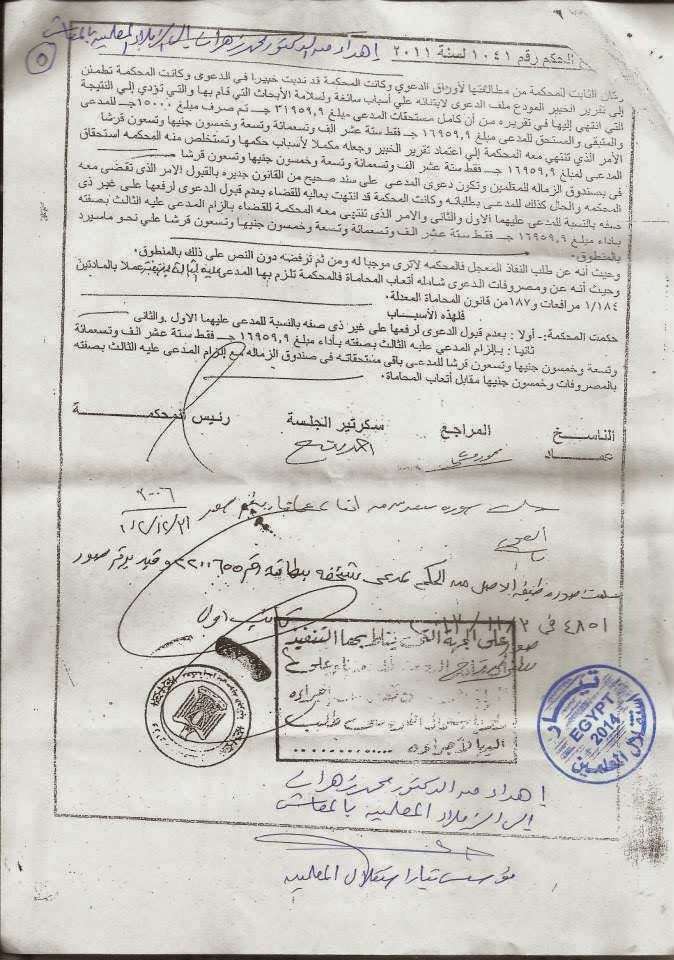 إهداء من الدكتور محمد زهران إلى الزملاء المعلمين بالمعاش
٥
الحكم رقم ١٠٤١ لسنة ٢٠١١
وكان الثابت للمحكمة من مطالعتها لأوراق الدعوي وكانت المحكمة قد ندبت خبيرا في الدعوى وكانت المحكمة تطمئن
إلى تقرير الخبير المودع ملف الدعوى لابتنائه علي أسباب سائغة ولسلامة الأبحاث التي قام بها والتي تؤدي إلي النتيجة
التي انتهي إليها في تقريره من أن كامل مستحقات المدعى مبلغ ٣١٩٥٩,٩ جـ تم صرف مبلغ ١٥٠٠٠جـ للمدعى
والمتبقى والمستحق للمدعى مبلغ ١٦٩٥٩,٩ جـ فقط ستة عشر الف وتسعمائة وتسعة وخمسون جنيها وتسعون قرشا
الأمر الذي تنتهي معه المحكمة إلي أعتماد تقرير الخبير وجعله مكملا لأسباب حكمها وتستخلص منه المحكمه استحقاق
المدعى لمبلغ ١٦٩٥٩,٩ جـ فقط ستة عشر الف وتسعمائة وتسعة وخمسون جنيها وتسعون قرشا
فى صندوق الزماله للمعلمين وتكون دعوى المدعى على سند صحيح من القانون جديره بالقبول الامر الذى تقضى معه
المحكمه والحال كذلك للمدعى بطلباته وكانت المحكمة قد انتهت بعاليه للقضاء بعدم قبول الدعوى لرفعها على غير ذى
صفه بالنسبة للمدعى عليهما الاول والثانى والامر الذى تنتهى معه المحكمة للقضاء بالزام المدعى عليه الثالث بصفته
بأداء مبلغ ١٦٩٥٩,٩ جـ فقط ستة عشر الف وتسعمائة وتسعة وخمسون جنيها وتسعون قرشا علي نحو ماسيرد
بالمنطوق٠
وحيث أنه عن طلب النفاذ المعجل فالمحكمه لاترى موجبا له ومن ثم ترفضه دون النص على ذلك بالمنطوق٠
وحيث أنه عن ومصروفات الدعوى شاملة أتعاب المحاماة فالمحكمة تلزم بها المدعى عليه الثالث بصفته عملا بالمادتين
١/١٨٤ مرافعات و١٨٧من قانون المحاماة المعدلة٠
فلهذه الأسباب
حكمت المحكمة:ـ أولا : بعدم قبول الدعوى لرفعها على غير ذى صفه بالنسبة للمدعى عليهما الاول والثانى
ثانيا : بإلزام المدعي عليه الثالث بصفته بأداء مبلغ ١٦٩٥٩,٩ جـ فقط ستة عشر الف وتسعمائة
وتسعة وخمسون جنيها وتسعون قرشا للمدعى باقى مستحقاته فى صندوق الزماله مع إلزام المدعي عليه الثالث بصفته
بالمصروفات وخمسون جنيها مقابل أتعاب المحاماة٠
الناسخ المراجع سكرتير الجلسة رئيس المحكمة
عماد
صور ٣٠٠٦
٢٠١٢/١٢/٣١
سلمت صورة طبق الاصل من الحكم للمدعى شخصه بطاقة رقم وقيد برقم صور
٤٨٥١ فى
صور على الجهة التى يناط بها التنفيذ
إجراءه
طلب
تيار استقلال المعلمين
EGYPT
2014
إهداء من الدكتور محمد زهران
إلى الزملاء المعلمين بالمعاش
مؤسس تيار استقلال المعلمين